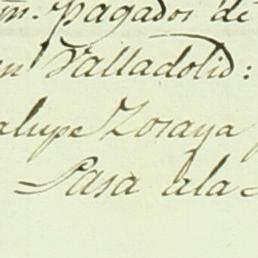 m. Pagados de
en Valladolid:
alupe Zoraya
Pasa ala